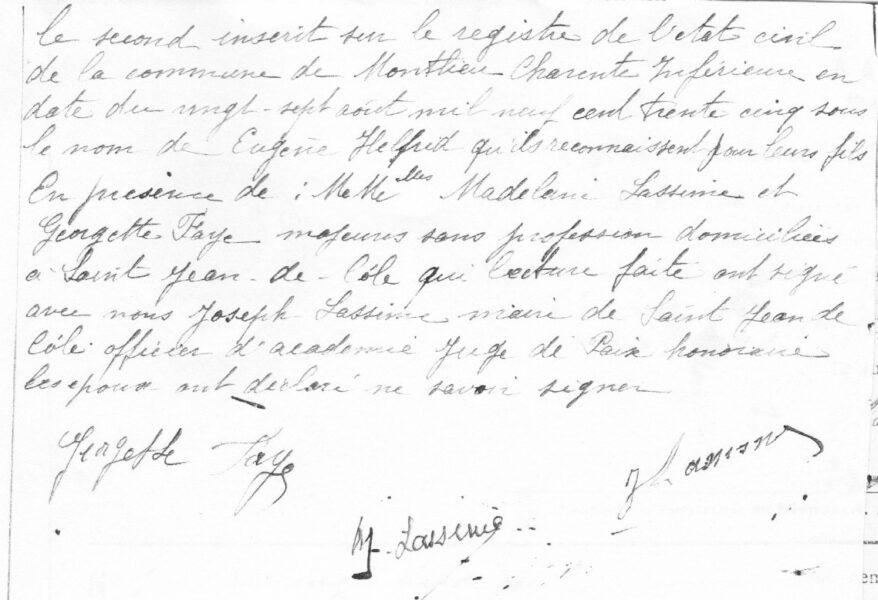 le second inscrit sur le registre de l'etat civil
de la commune de Montlieu Charente Inférieure en
date du vingt-sept août mil neuf cent trente cinq sous
le nom de Eugène Helfrid qu'ils reconnaissent pour leurs fils
En présence de : Melle elles Madeleine Lassime et
Georgette Faye majeures sans profession domiciliées
a Saint Jean-de-Côle qui lecture faite ont signé
avec nous Joseph Lassime maire de Saint Jean de
Côle officier d'académie Juge de Paix honoraire
les epoux ont declaré ne savoir signer
Georgette Faye
M. Lassime
en